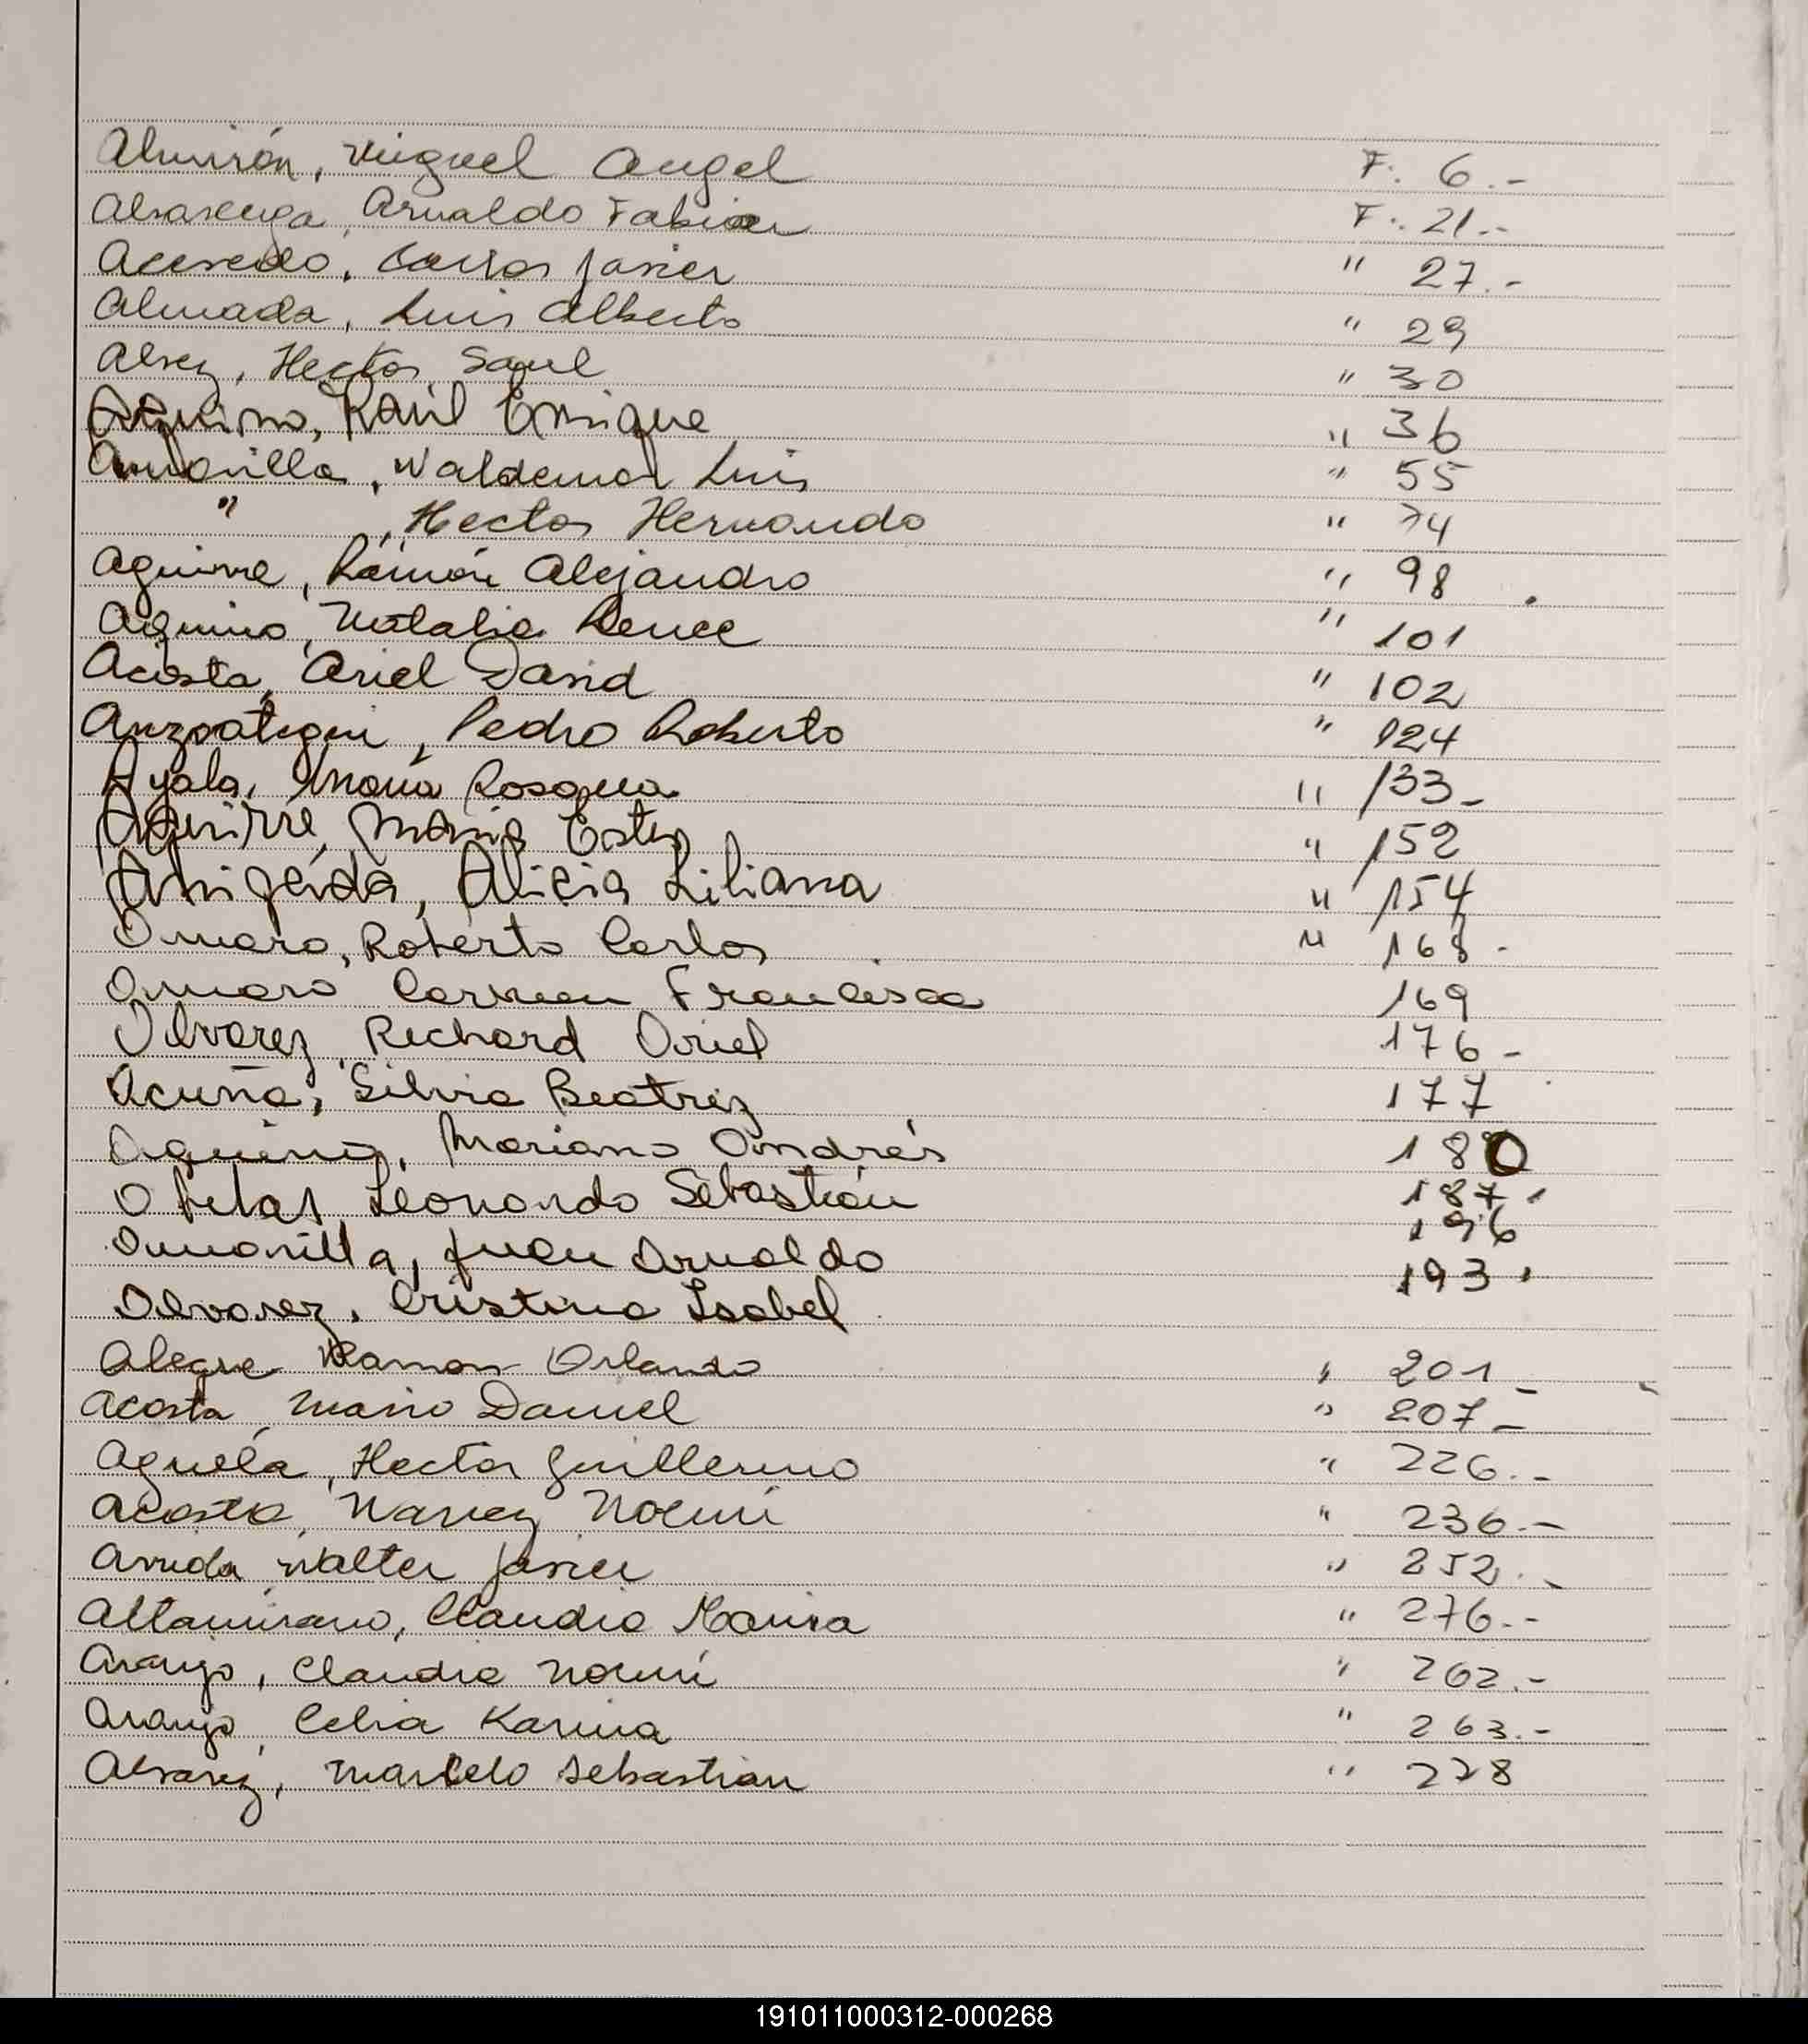 Almirón, Miguel Angel F. 6.-
Alvarenga, Arnaldo Fabian F. 21.-
Acevedo, Carlos Javier " 27.-
Almada, Luis Alberto " 29
Alvez, Hector Saul " 30
Aquino, Raúl Enrique " 36
Amarilla, Waldemar Luis " 55
" , Hector Hernando " 74
Aguirre, Ramón Alejandro " 98
Aquino, Natalia Renee " 101
Acosta, Ariel David " 102
Anzoategui, Pedro Roberto " 124
Ayala, Maria Rosana " 133-
Aguirre, Maria Ester " 152
Alicia Liliana " 154
Amaro, Roberto Carlos " 168-
Amaro Carmen Francisca 169
Alvarez, Richard Ariel 176-
Acuña, Silvia Beatriz 177
Aquino, Mariano Andrés 180
Leonardo Sebastián 187
Amarilla, Juan Arnaldo 196
Alvarez, Cristina Isabel 193
Alegre Ramon Orlando " 201-
Acosta, Mario Daniel " 207-
Aguela, Hector Guillermo " 226.-
Acosta, Nancy Noemí " 236.-
Arrieda Walter Javier " 252.-
Altamirano, Claudia Marisa " 276.-
Araujo, Claudia Noemí " 262.-
Araujo, Celia Karina " 263.-
Alvarez, Marcelo Sebastian " 278
191011000312-000268